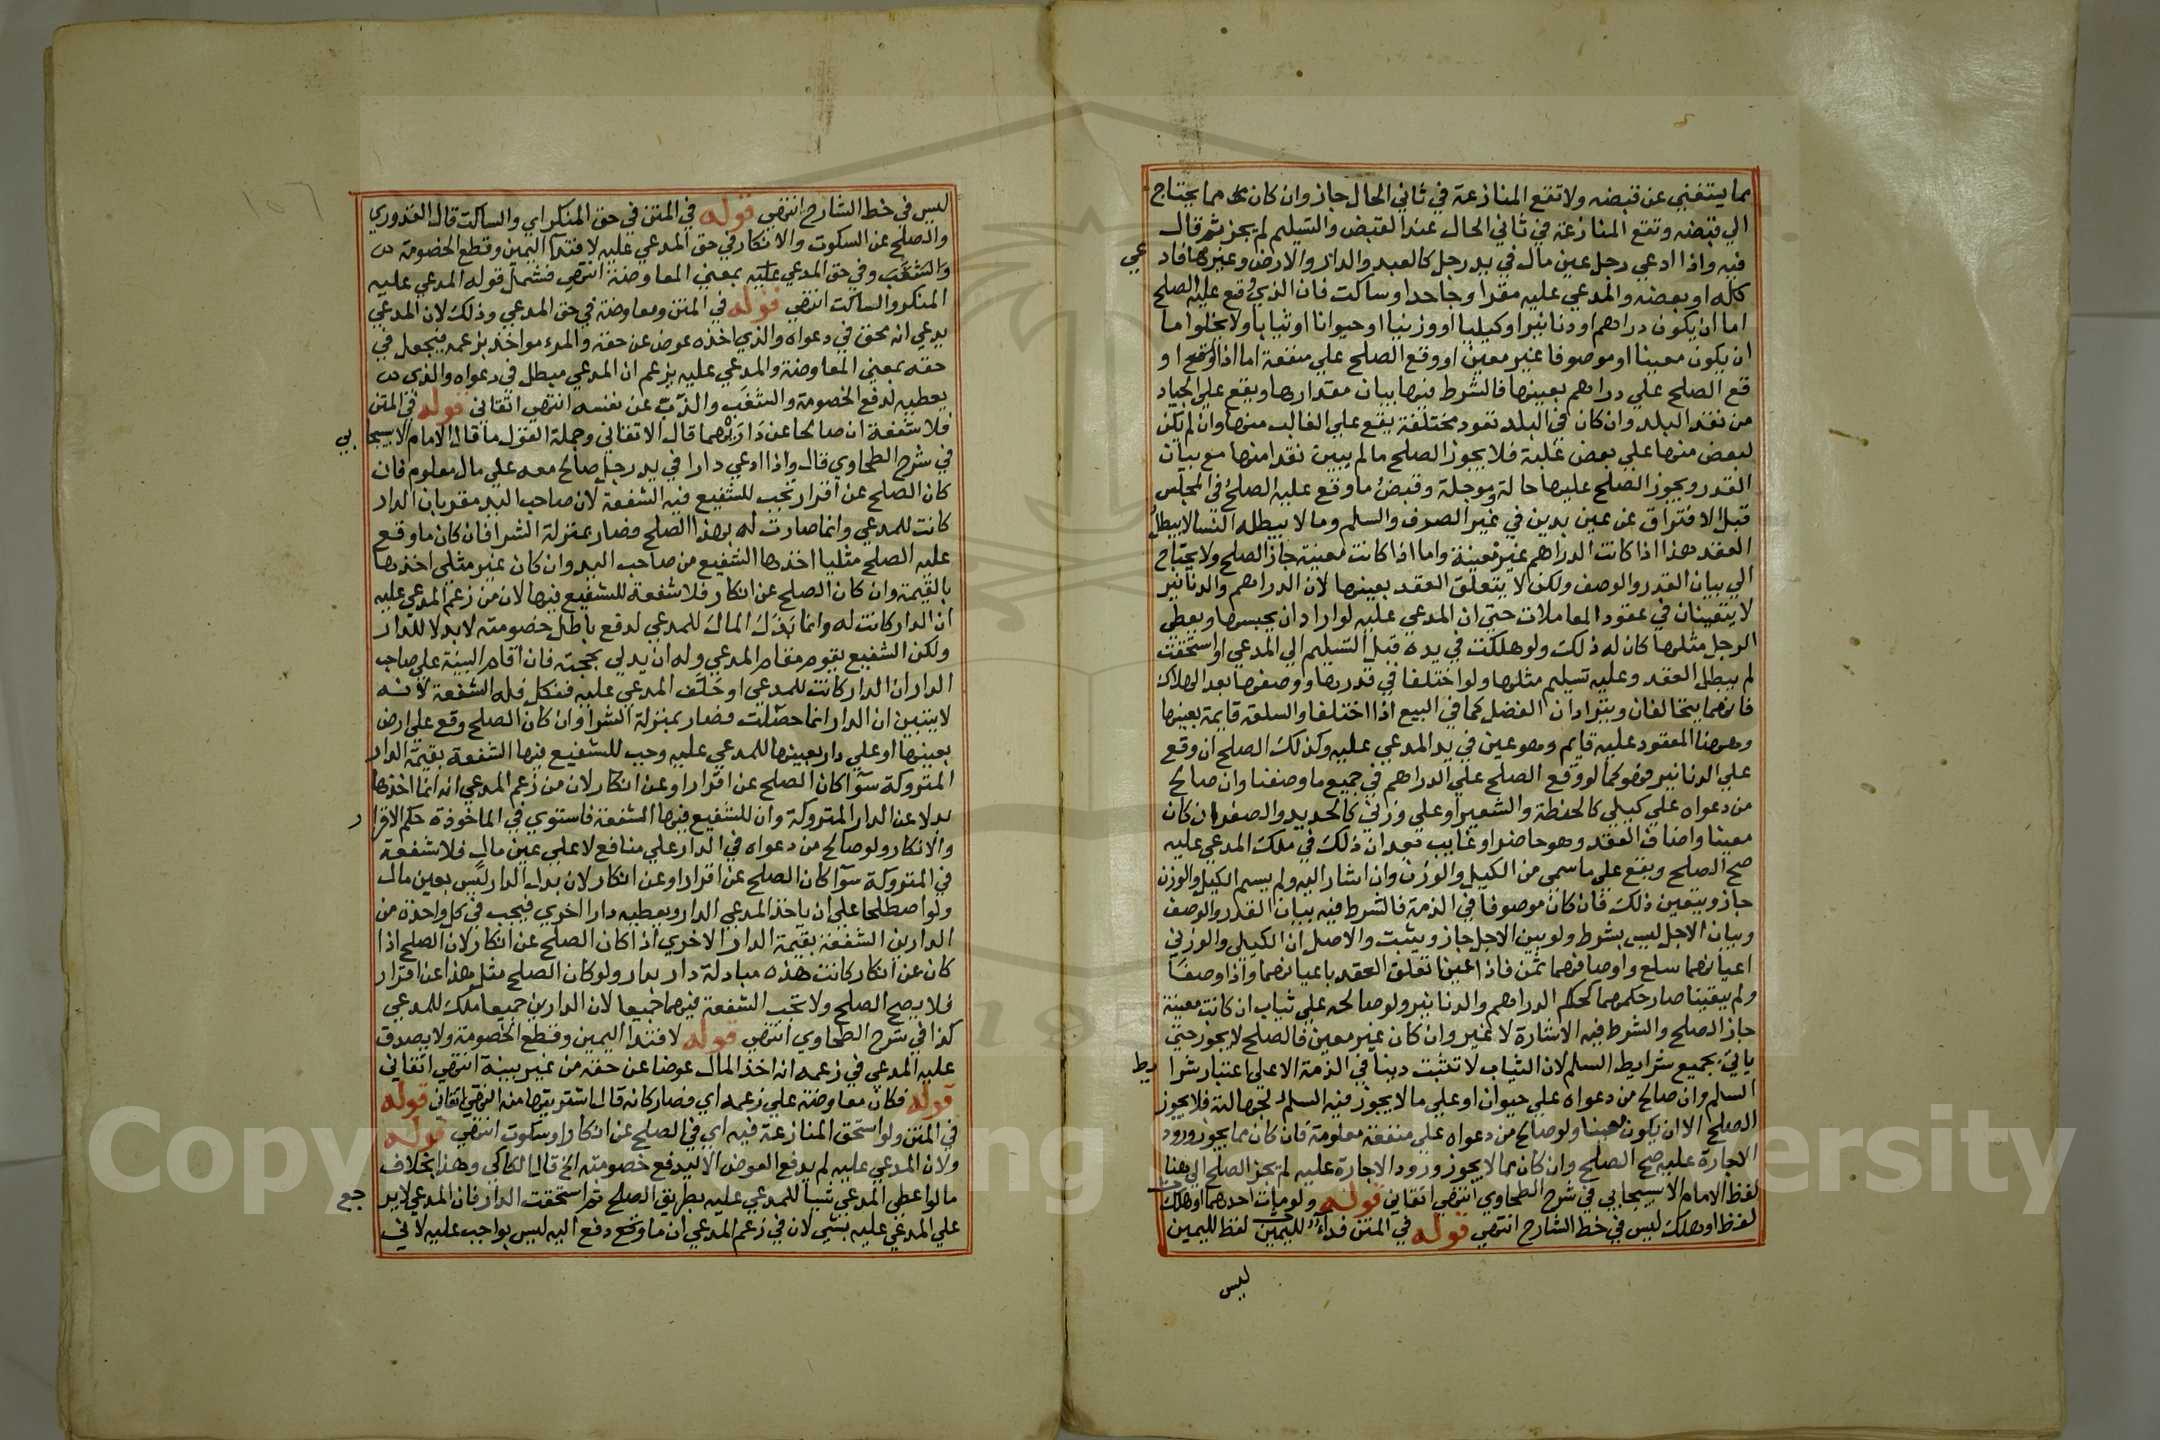 مما يستغني عن قبضه ولا تقع المنازعة في ثاني الحال جاز وان كان مما يحتاج
الي قبضه وتقع المنازعة في ثاني الحال عند القبض والتسليم لم يجز ثم قال
فيه واذا ادعي رجل عين مال في يد رجل كالعبد والدار والارض وغيرها فاد عي
كله او بعضه والمدعي عليه مقرا وجاحدا وساكت فان الذي وقع عليه الصلح
اما ان يكون دراهم او دنانير او كيليا او وزنيا او حيوانا او ثيابا ولا يخلوا ما
ان يكون معينا او موصوفا غير معين او وقع الصلح علي منفعة اما اذا و
قع الصلح علي دراهم بعينها فالشرط فيها بيان مقدارها ويقع علي الجياد
من نقد البلد وان كان في البلد نقود مختلفة يقع علي الغالب منها وان لم يكن
لبعض منها علي بعض غلبة فلا يجوز الصلح ما لم يبين نقدا منها مع بيان
القدر ويجوز الصلح عليها حالة وموجلة وقبض ما وقع عليه الصلح في المجلس
قبل الافتراق عن عين بدين في غير الصرف والسلم وما لا يبطله النسا لا يبطل
العقد هذا اذا كانت الدراهم غير معينة واما اذا كانت معينة جاز الصلح ولا يحتاج
الي بيان القدر والوصف ولكن لا يتعلق العقد بعينها لان الدراهم والدنانير
لا يتعينان في عقود المعاملات حتي ان المدعي عليه لو اراد ان يحبسها ويعطي
الرجل مثلها كان له ذلك ولو هلكت في يده قبل التسليم الي المدعي او استحقت
لم يبطل العقد وعليه تسليم مثلها ولو اختلفا في قدرها ووصفها بعد الهلاك
فانهما يتحالفان ويترادان الفضل كما في البيع اذا اختلفا والسلعة قايمة بعينها
وههنا المعقود عليه قايم وهو عين في يد المدعي عليه وكذلك الصلح ان وقع
علي الدنانير فهو كما لو وقع الصلح علي الدراهم في جميع ما وصفنا وان صالح
من دعواه علي كيلي كالحنطة والشعير او علي وزني كالحديد والصفر ان كان
معينا واضاف العقد وهو حاضر او غايب بعد ان ذلك في ملك المدعي عليه
صح الصلح ويقع علي ما سمي من الكيل والوزن وان اشار اليه ولم يسم الكيل والوزن
جاز ويتعين ذلك فان كان موصوفا في الذمة فالشرط فيه بيان القدر والوصف
وبيان الاجل ليس بشرط ولو بين الاجل جاز ويثبت والاصل ان الكيلي والوزني
اعيانهما سلع واوصافهما ثمن فاذا عينا تعلق العقد باعيانهما واذا وصفا
ولم يعينا صار حكمهما كحكم الدراهم والدنانير ولو صالحه علي ثياب ان كانت معينة
جاز الصلح والشرط فيه الاشارة لا غير وان كان غير معين فالصلح لا يجوز حتي
ياتي بجميع شرايط السلم لان الثياب لا تثبت دينا في الذمة الا علي اعتبار شرا يط
السلم وان صالح من دعواه علي حيوان او علي ما لا يجوز فيه السلم لجهالته فلا يجوز
الصلح الا ان يكون معينا ولو صالح من دعواه علي منفعة معلومة فان كان مما يجوز ورود
الاجارة عليه صح الصلح وان كان مما لا يجوز ورود الاجارة عليه لم يجز الصلح الي هنا
لفظ الامام الاسبيجابي في شرح الطحاوي انتهي اتقاني قوله ولو مات احدهما او هلك
لفظ او هلك ليس في خط الشارح انتهي قوله في المتن فداء لليمين لفظ لليمين
ليس
ليس في خط الشارح انتهي قوله في المتن في حق المنكر اي والساكت قال القدوري
والصلح عن السكوت والانكار في حق المدعي عليه لافتداء اليمين وقطع الخصومة
والشغب وفي حق المدعي عليه بمعني المعاوضة انتهي فشمل قوله المدعي عليه
المنكر والساكت انتهي قوله في المتن ومعاوضة في حق المدعي وذلك لان المدعي
يدعي انه محق في دعواه والذي اخذه عوض عن حقه والمرء مواخذ بزعمه فيجعل في
حقه بمعني المعاوضة والمدعي عليه يزعم ان المدعي مبطل في دعواه والذي
يعطيه لدفع الخصومة والشغب والذب عن نفسه انتهي اتقاني قوله في المتن
فلا شفعة ان صالحا عن دار بهما قال الاتقاني وجملة القول ما قال الامام الاسبيجا بي
في شرح الطحاوي قال واذا ادعي دارا في يد رجل صالح معه علي مال معلوم فان
كان الصلح عن اقرار تجب للشفيع فيه الشفعة لان صاحب اليد مقر بان الدار
كانت للمدعي وانما صارت له بهذا الصلح فصار بمنزلة الشرا فان كان ما وقع
عليه الصلح مثليا اخذها الشفيع من صاحب اليد وان كان غير مثلي اخذها
بالقيمة وان كان الصلح عن انكار فلا شفعة للشفيع فيها لان من زعم المدعي عليه
ان الدار كانت له وانما بذل المال للمدعي لدفع باطل خصومته لا بدلا للدار
ولكن الشفيع يقوم مقام المدعي وله ان يدلي بحجته فان اقام البينة علي صاحب
الدار ان الدار كانت للمدعي او حلف المدعي عليه فنكل فله الشفعة لانه
لا يتبين ان الدار انما حصلت فصار بمنزلة الشرا وان كان الصلح وقع علي ارض
بعينها او علي دار بعينها للمدعي عليه وجب للشفيع فيها الشفعة بقيمة الدار
المتروكة سوآ كان الصلح عن اقرار او عن انكار لان من زعم المدعي انه انما اخذها
بدلا عن الدار المتروكة وان للشفيع فيها الشفعة فاستوي في الماخوذة حكم الاقرا ر
والانكار ولو صالح من دعواه في الدار علي منافع لا علي عين مال فلا شفعة
في المتروكة سوآ كان الصلح عن اقرار او عن انكار لان بدل الدار ليس بعين مال
ولو اصطلحا علي ان ياخذ المدعي الدار ويعطيه دارا اخري فيجب في كل واحدة من
الدارين الشفعة بقيمة الدار الاخري اذا كان الصلح عن انكار لان الصلح اذا
كان عن انكار كانت هذه مبادلة دار بدار ولو كان الصلح مثل هذا عن اقرار
فلا يصح الصلح ولا تجب الشفعة فيهما جميعا لان الدارين جميعا ملك للمدعي
كذا في شرح الطحاوي انتهي قوله لافتداء اليمين وقطع الخصومة ولا يصدق
عليه المدعي في زعمه انه اخذ المال عوضا عن حقه من غير بينة انتهي اتقاني
قوله فكان معاوضة علي زعمه اي فصار كانه قال اشتريتها منه انتهي اتقاني قوله
في المتن ولو استحق المنازعة فيه اي في الصلح عن انكار او سكوت انتهي قوله
ولان المدعي عليه لم يدفع العوض الا ليدفع خصومته الخ قال الكاكي وهذا بخلاف
ما لو اعطي المدعي شيا للمدعي عليه بطريق الصلح ثم استحقت الدار فان المدعي لا ير جع
علي المدعي عليه بشي لان في زعم المدعي ان ما وقع دفع اليه ليس بواجب عليه لاني